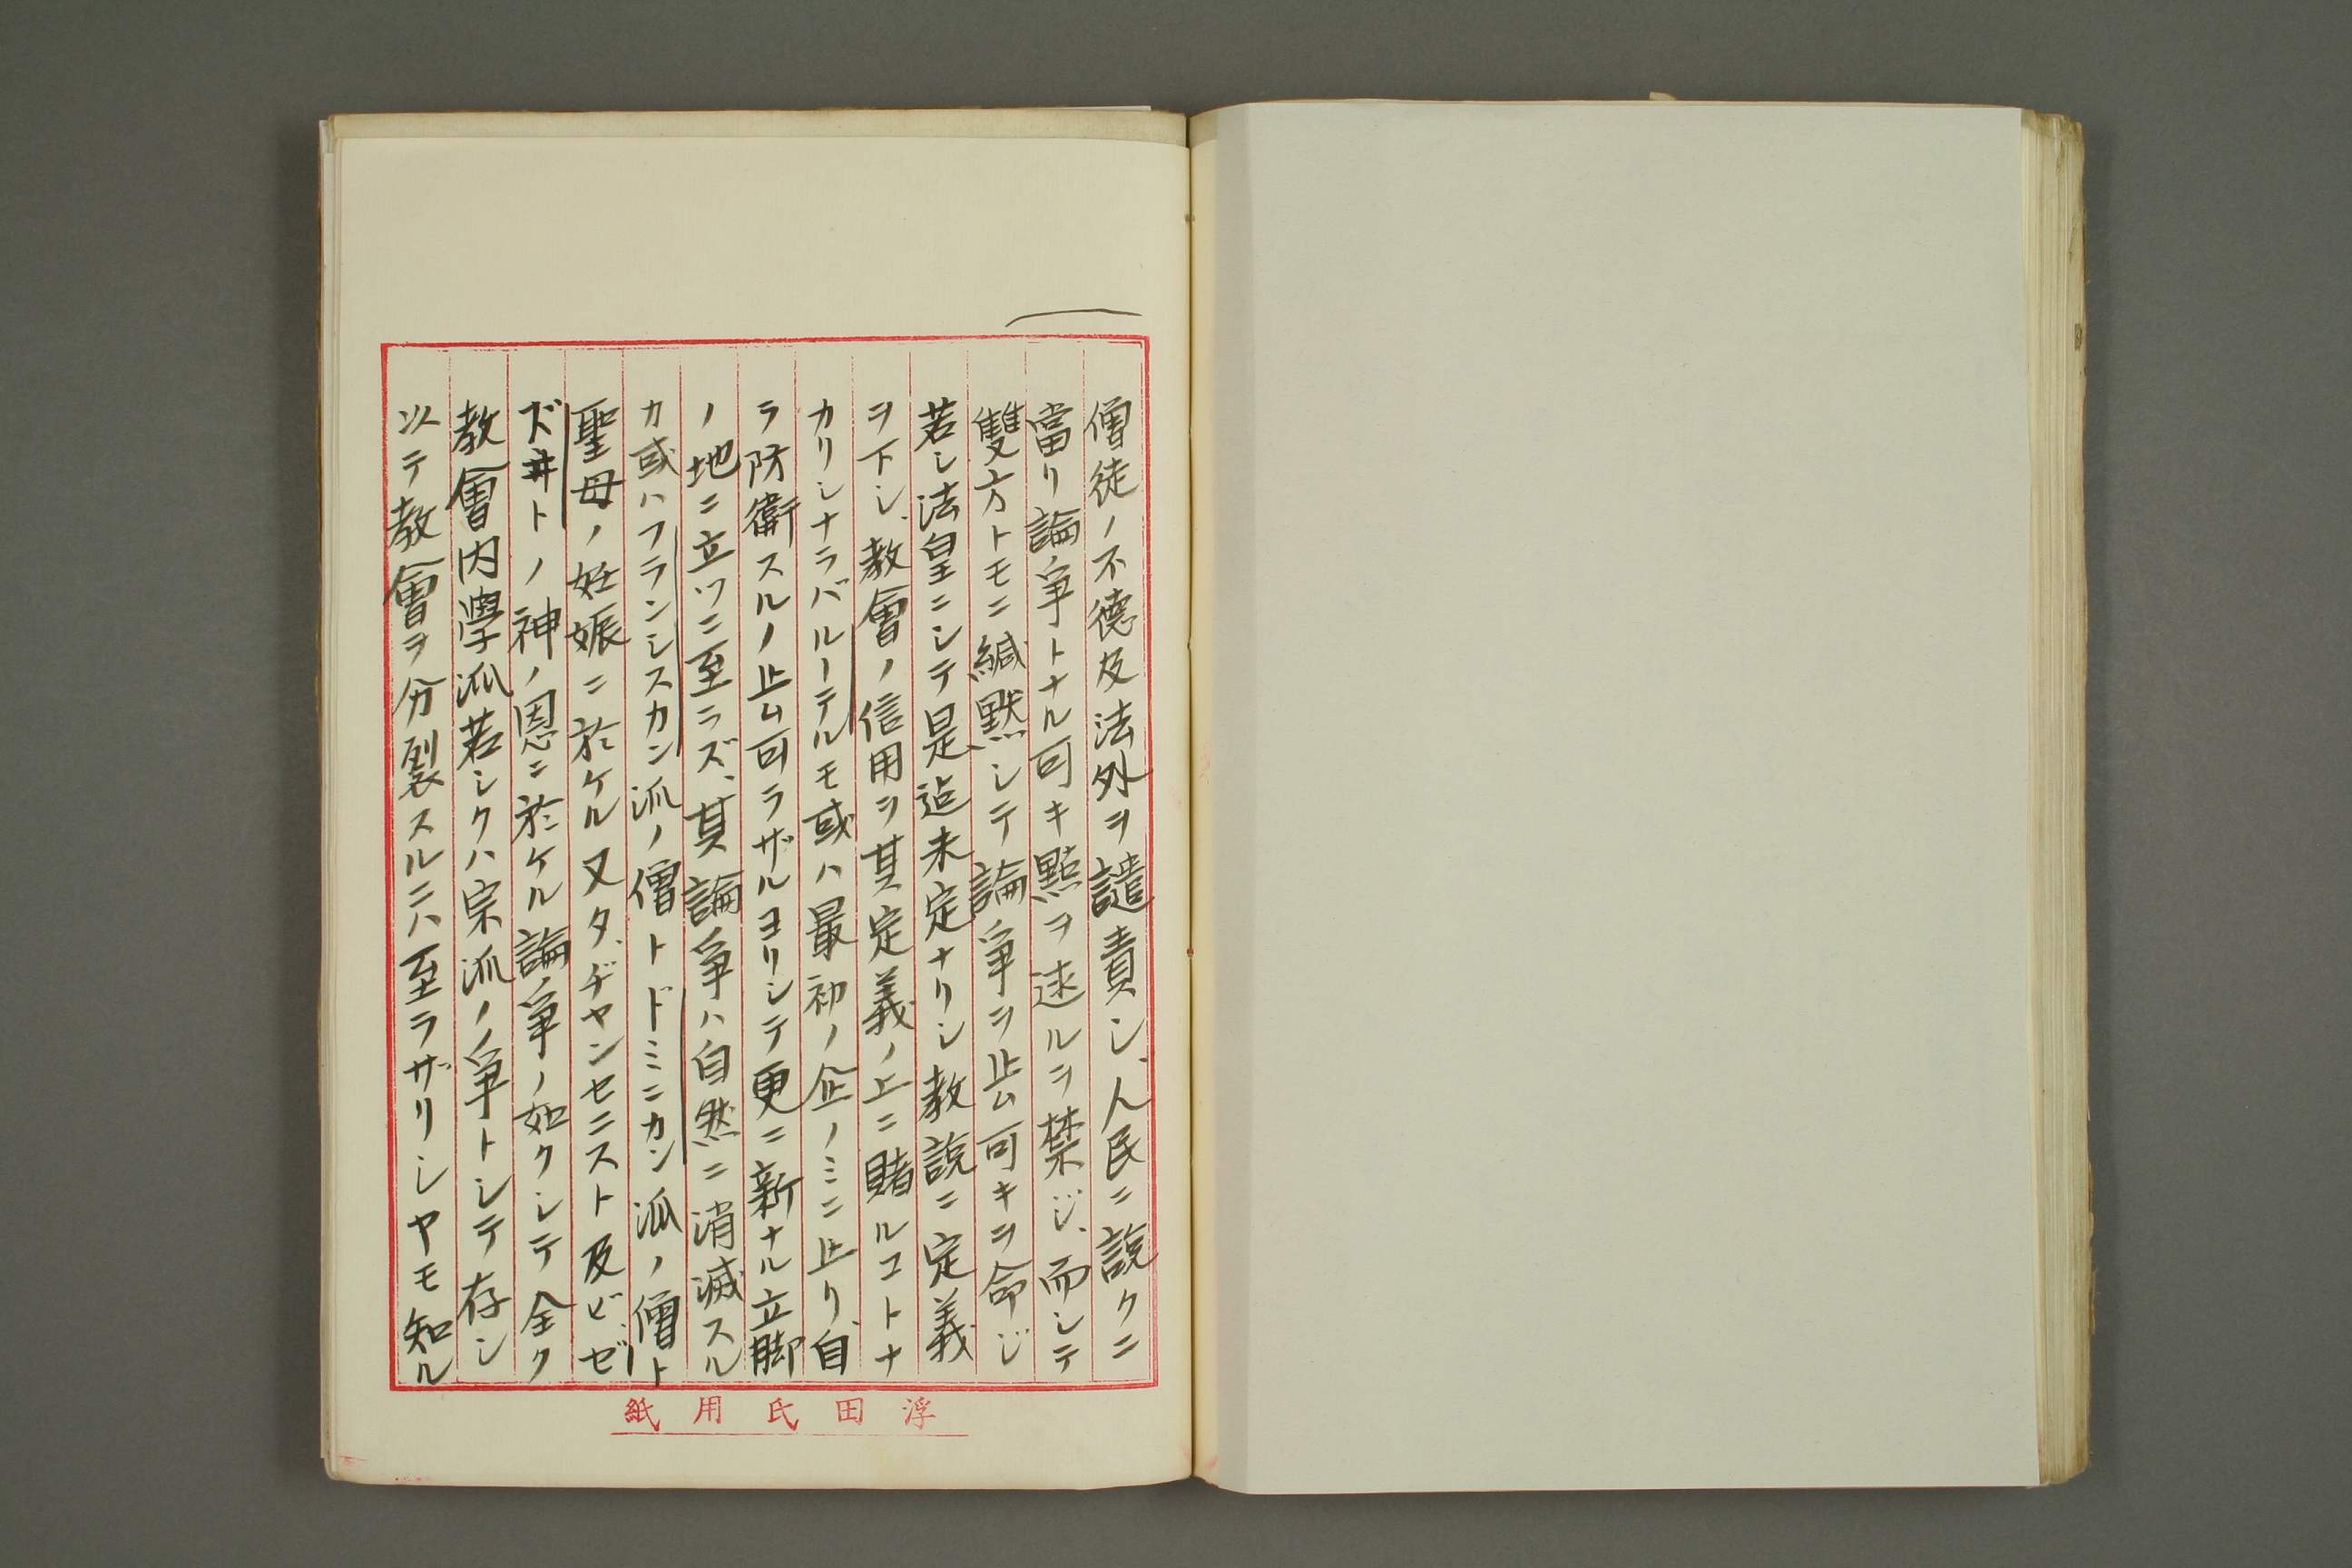 僧徒ノ不徳及法外ヲ譴責シ、人民ニ説クニ
當リ論爭トナル可キ點ヲ述ルヲ禁ジ、而シテ
雙方トモニ緘默シテ論爭ヲ止ム可キヲ命ジ
若シ法皇ニシテ是迄未定ナリシ教説ニ定義
ヲ下シ、教會ノ信用ヲ其定義ノ上ニ賭ルコトナ
カリシナラバルーテルモ或ハ最初ノ企ノミニ止リ、自
ラ防衛スルノ止ム可ラザルヨリシテ更ニ新ナル立脚
ノ地ニ立ツニ至ラズ、其論爭ハ自然ニ消滅スル
カ或ハフランシスカン派ノ僧トドミニカン派ノ僧ト
聖母ノ妊娠ニ於ケル又タ、ヂヤンセニスト及ビ、ゼ
ズ井トノ神ノ恩ニ於ケル論爭ノ如クシテ全ク
教會内學派若シクハ宗派ノ爭トシテ存シ
以テ教會ヲ分裂スルニハ至ラザリシヤモ知ル
浮田氏用紙